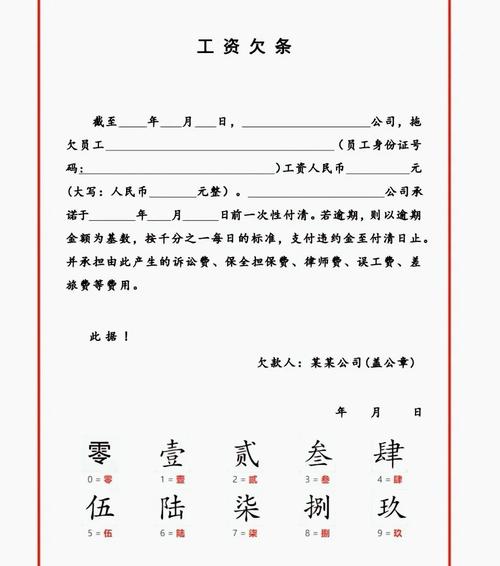 工资欠条
截至____年___月___日，__________________公司，拖
欠员工________________________________（员工身份证号
码：__________________________)工资人民币_________元
(大写：人民币_______元整）。__________________公司承
诺于_______年____月_____日前一次性付清。若逾期，则以逾期
金额为基数，按千分之一每日的标准，支付违约金至付清日止。
并承担由此产生的诉讼费、保全担保费、律师费、误工费、差
旅费等费用。
此据！
欠款人：某某公司(盖公章)
年 月 日
零 壹 贰 叁 肆
0 = 零 1 = 壹 2 = 贰 3 = 叁 4 = 肆
伍 陆 柒 捌 玖
5 = 伍 6 = 陆 7 = 柒 8 = 捌 9 = 玖